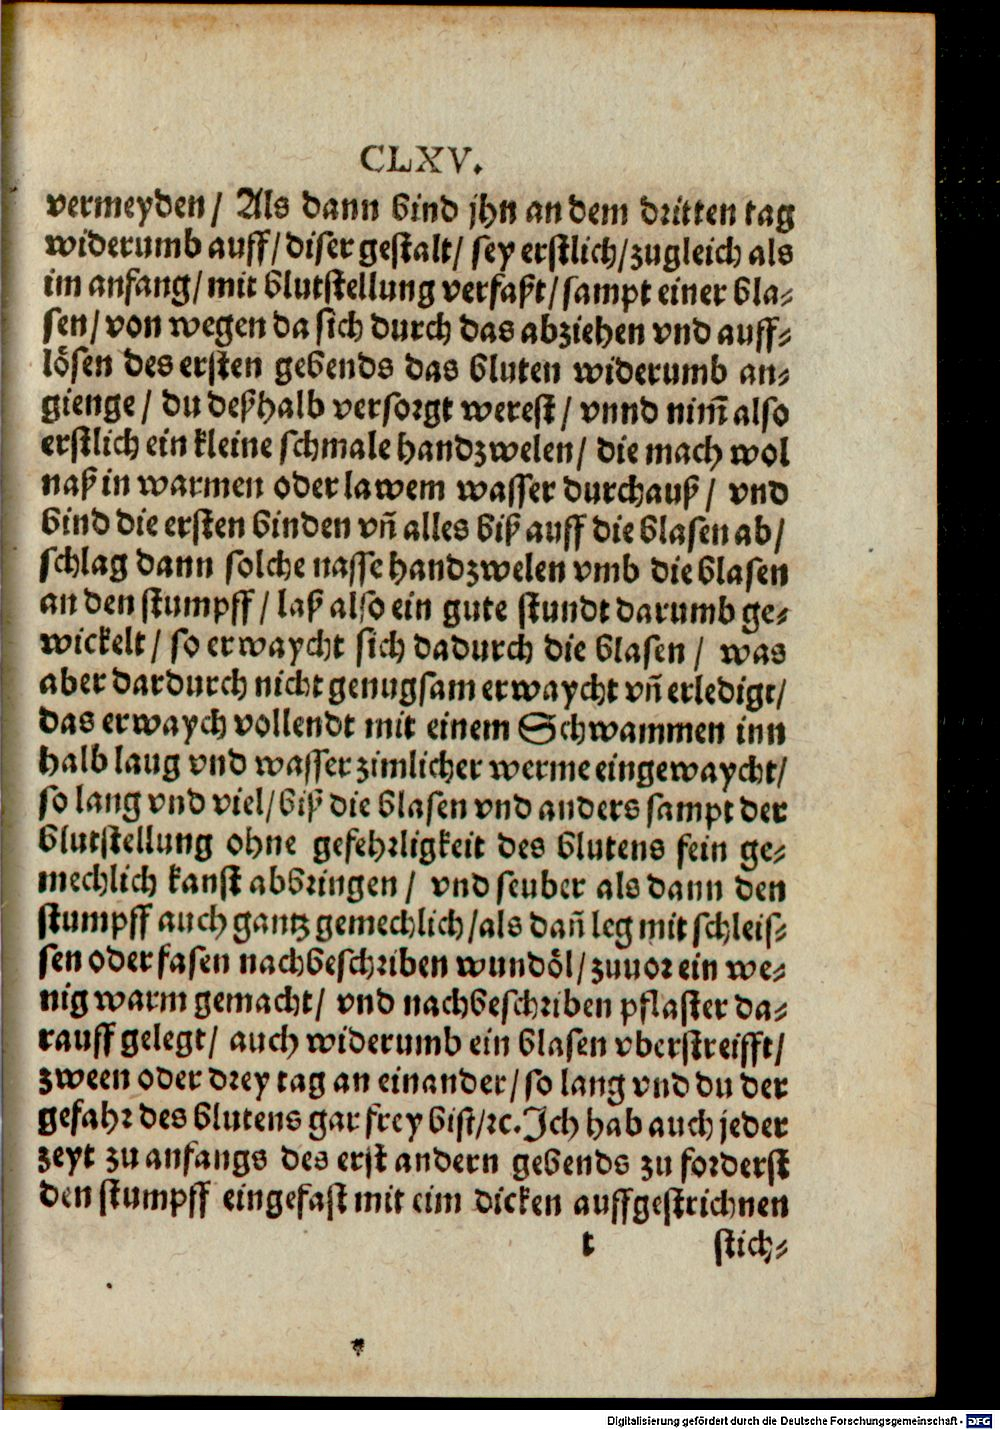 CLXV.
vermeyden / Als dann bind jhn an dem dritten tag
widerumb auff / diser gestalt / sey erstlich / zugleich als
im anfang / mit blutstellung verfaßt / sampt einer bla⸗
sen / von wegen da sich durch das abziehen vnd auff⸗
lösen des ersten gebends das bluten widerumb an⸗
gienge / du deßhalb versorgt werest / vnnd nim̃ also
erstlich ein kleine schmale handzwelen / die mach wol
naß in warmen oder lawem wasser durchauß / vnd
bind die ersten binden vñ alles biß auff die blasen ab /
schlag dann solche nasse handzwelen vmb die blasen
an den stumpff / laß also ein gute stundt darumb ge⸗
wickelt / so erwaycht sich dadurch die blasen / was
aber dardurch nicht genugsam erwaycht vñ erledigt /
das erwaych vollendt mit einem Schwammen inn
halb laug vnd wasser zimlicher werme eingewaycht /
so lang vnd viel / biß die blasen vnd anders sampt der
blutstellung ohne gefehrligkeit des blutens fein ge⸗
mechlich kanst abbringen / vnd seuber als dann den
stumpff auch gantz gemechlich / als dañ leg mit schleis⸗
sen oder fasen nachbeschriben wundöl / zuuor ein we⸗
nig warm gemacht / vnd nachbeschriben pflaster da⸗
rauff gelegt / auch widerumb ein blasen vberstreifft /
zween oder drey tag an einander / so lang vnd du der
gefahr des blutens gar frey bist / ꝛc. Ich hab auch jeder
zeyt zu anfangs des erst andern gebends zu forderst
den stumpff eingefast mit eim dicken auffgestrichnen
t stich⸗
Digitalisierung gefördert durch die Deutsche Forschungsgemeinschaft - DFG